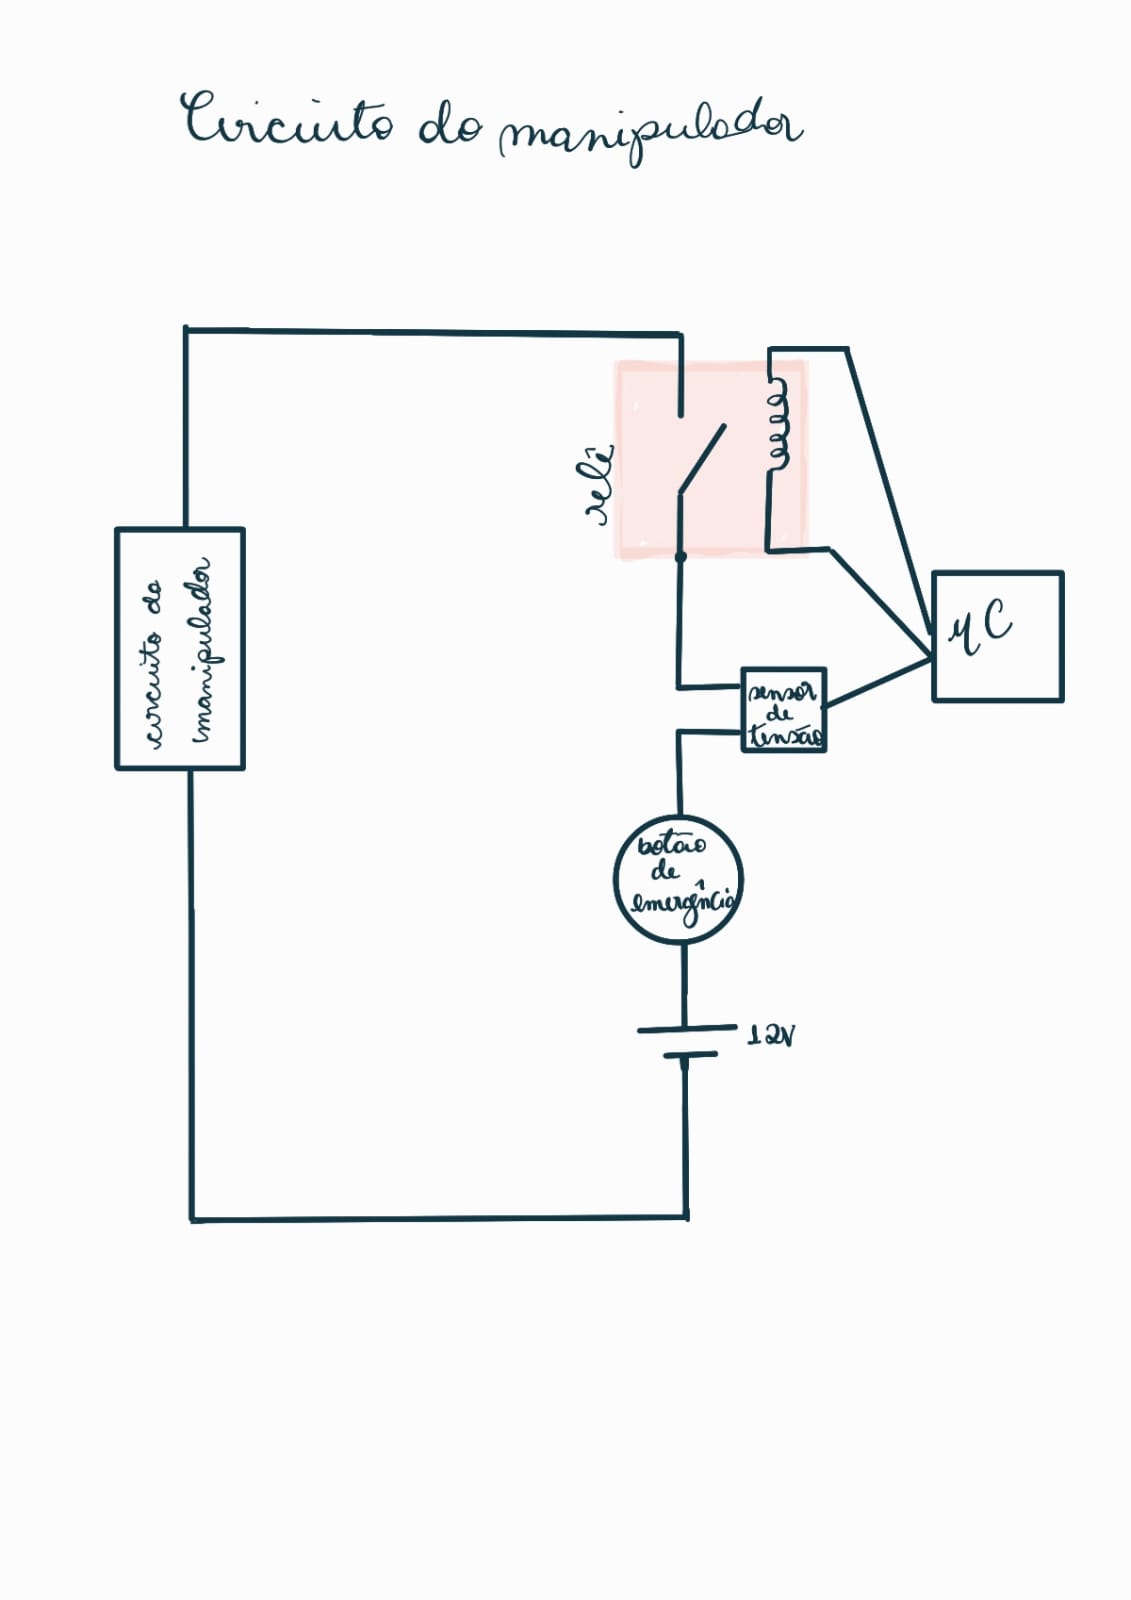 Circuito do manipulador
relê
circuito do
manipulador
µC
sensor
de
tensão
botão
de
emergência
12V